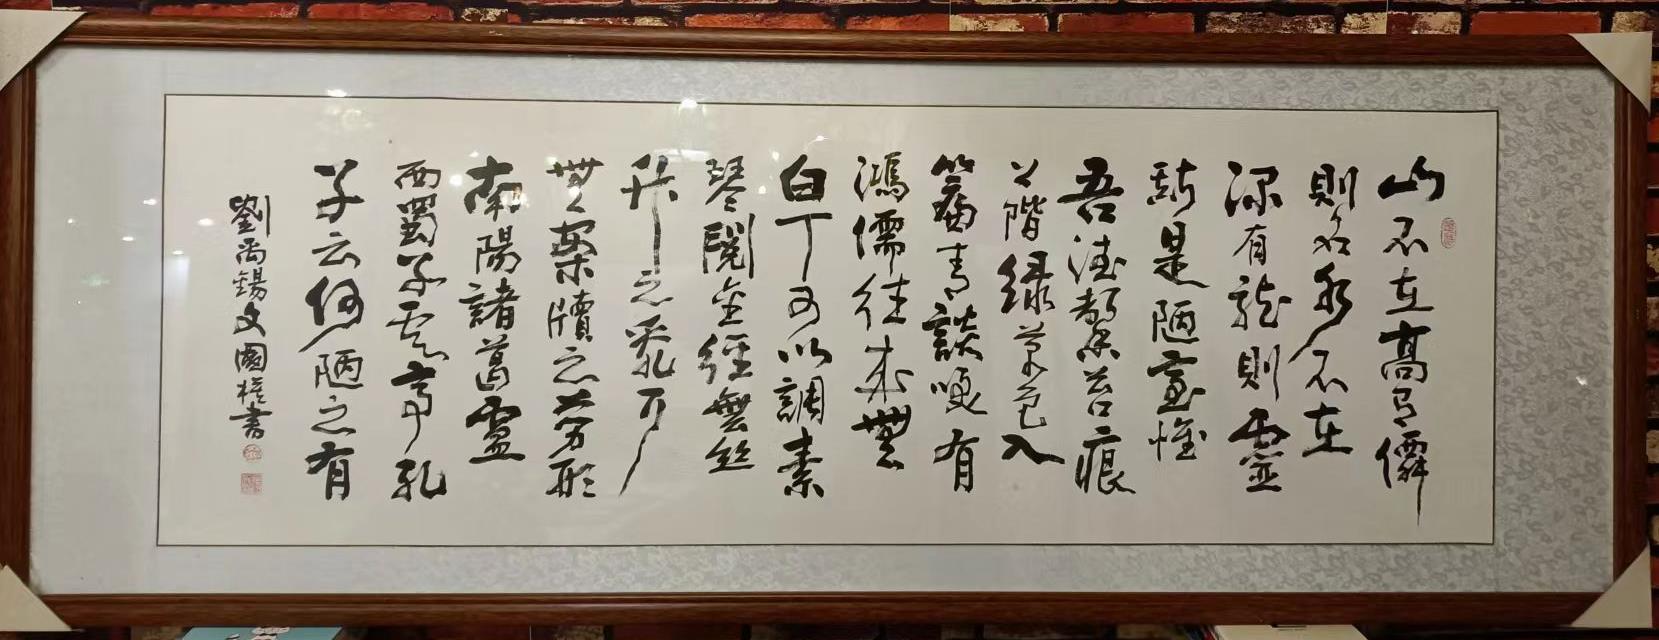 山不在高有僊
則名水不在
深有龍則靈
斯是陋室惟
吾德馨苔痕
上階綠草色入
簾青談咲有
鴻儒往來無
白丁可以調素
琴閱金經無絲
竹之亂耳
無案牘之勞形
南陽諸葛廬
西蜀子雲亭孔
子云何陋之有
劉禹錫文國書